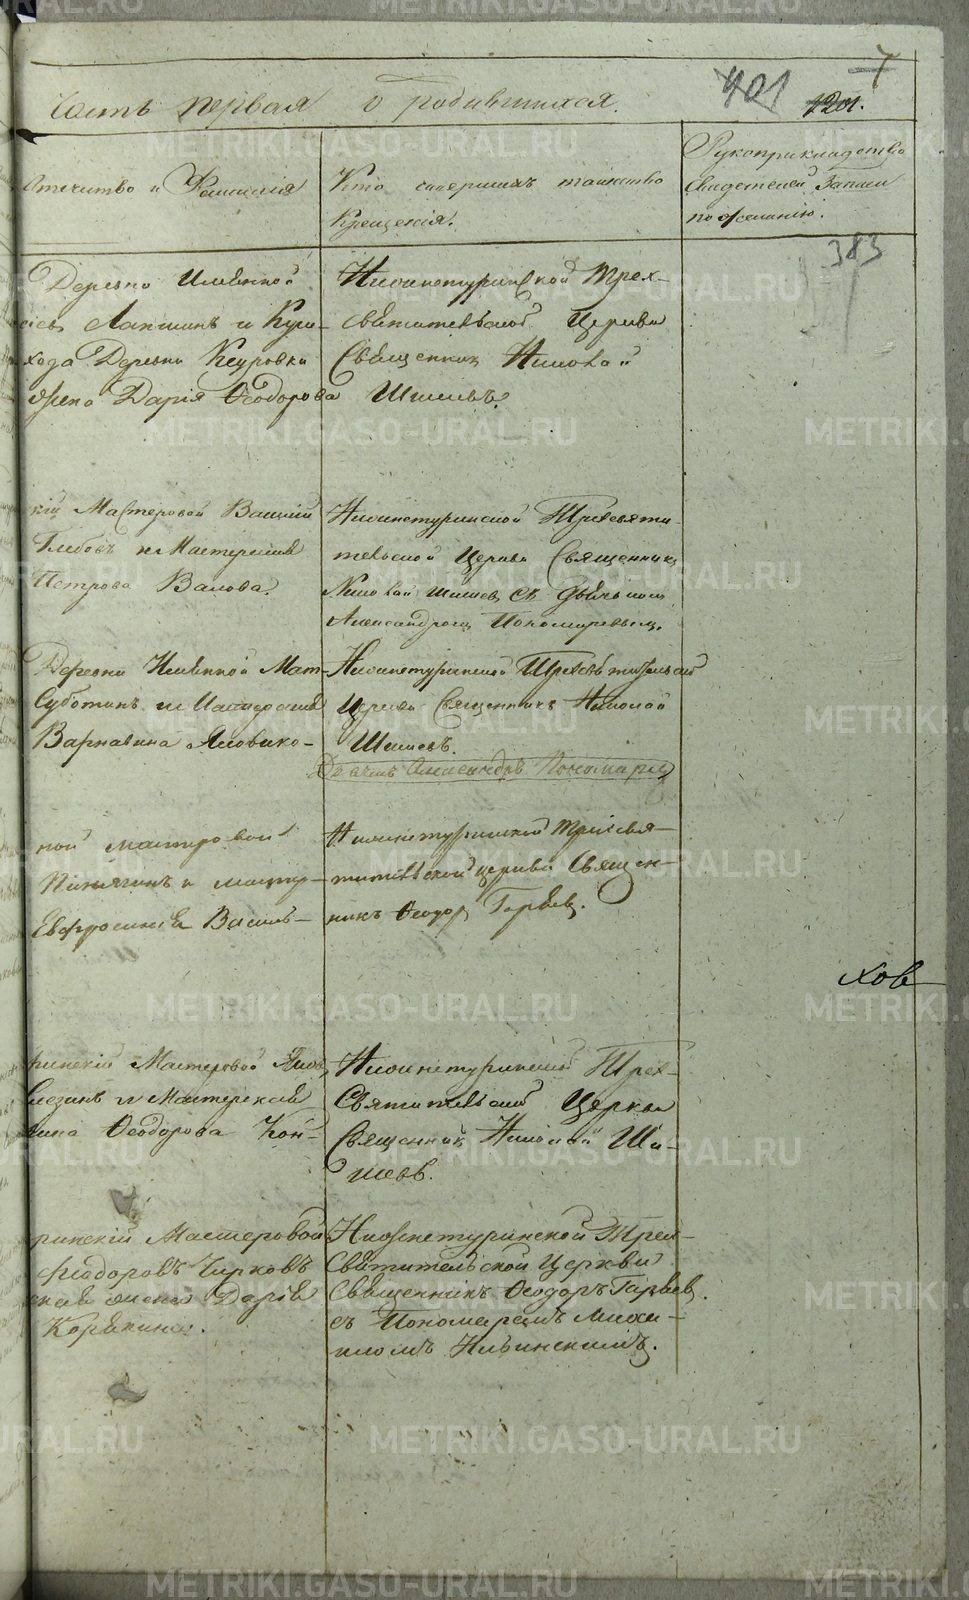 7
401 1201.
Часть первая о родившихся.
Отечество и Фамилія
Кто совершилъ таинство
Крещенія.
Рукоприкладство
Свидетелей Записи
по желанію.
383
Деревни Илевнной
Лапшинъ и Кури-
хода Деревни Кеуровка
жена Дарія Ѳеодорова
Нижнетуринской Трех-
святительской Церкви
Священник Николай
Шишевъ.
кій Мастеровой Василій
Глебовъ и Мастерская
Петрова Валова.
Нижнетуринской Трехсвяти-
тельской Церкви Священникъ
Николай Шишев съ Дьячкомъ
Александромъ Пономаревымъ.
Деревни Илевнной Мат-
Суботинъ и Мастерская
Варнавина Яковлева
Нижнетуринской Трехсвятительской
Церкви Священникъ Николай
Шишевъ.
Дьячекъ Александръ Пономаревъ
ной мастеровой
Пинягинъ и мастер-
Евфросинія Василь-
Нижнетуринской Трехсвя-
тительской церкви Священ-
никъ Ѳеодор Гаряев.
хов
ринскій Мастеровой Яков
и Мастерская
Ѳеодорова Кон-
Нижнетуринской Трех-
Святительской Церкви
Священник Николай Ши-
шевъ.
ринскій Мастеровой
Ѳиодоровъ Чирковъ
ская жена Дарія
Корякина.
Нижнетуринской Трех-
Святительской Церкви
Священникъ Ѳеодоръ Гаряев.
съ Пономаремъ Миха-
иломъ Ильинскимъ.
METRIKI.GASO-URAL.RU